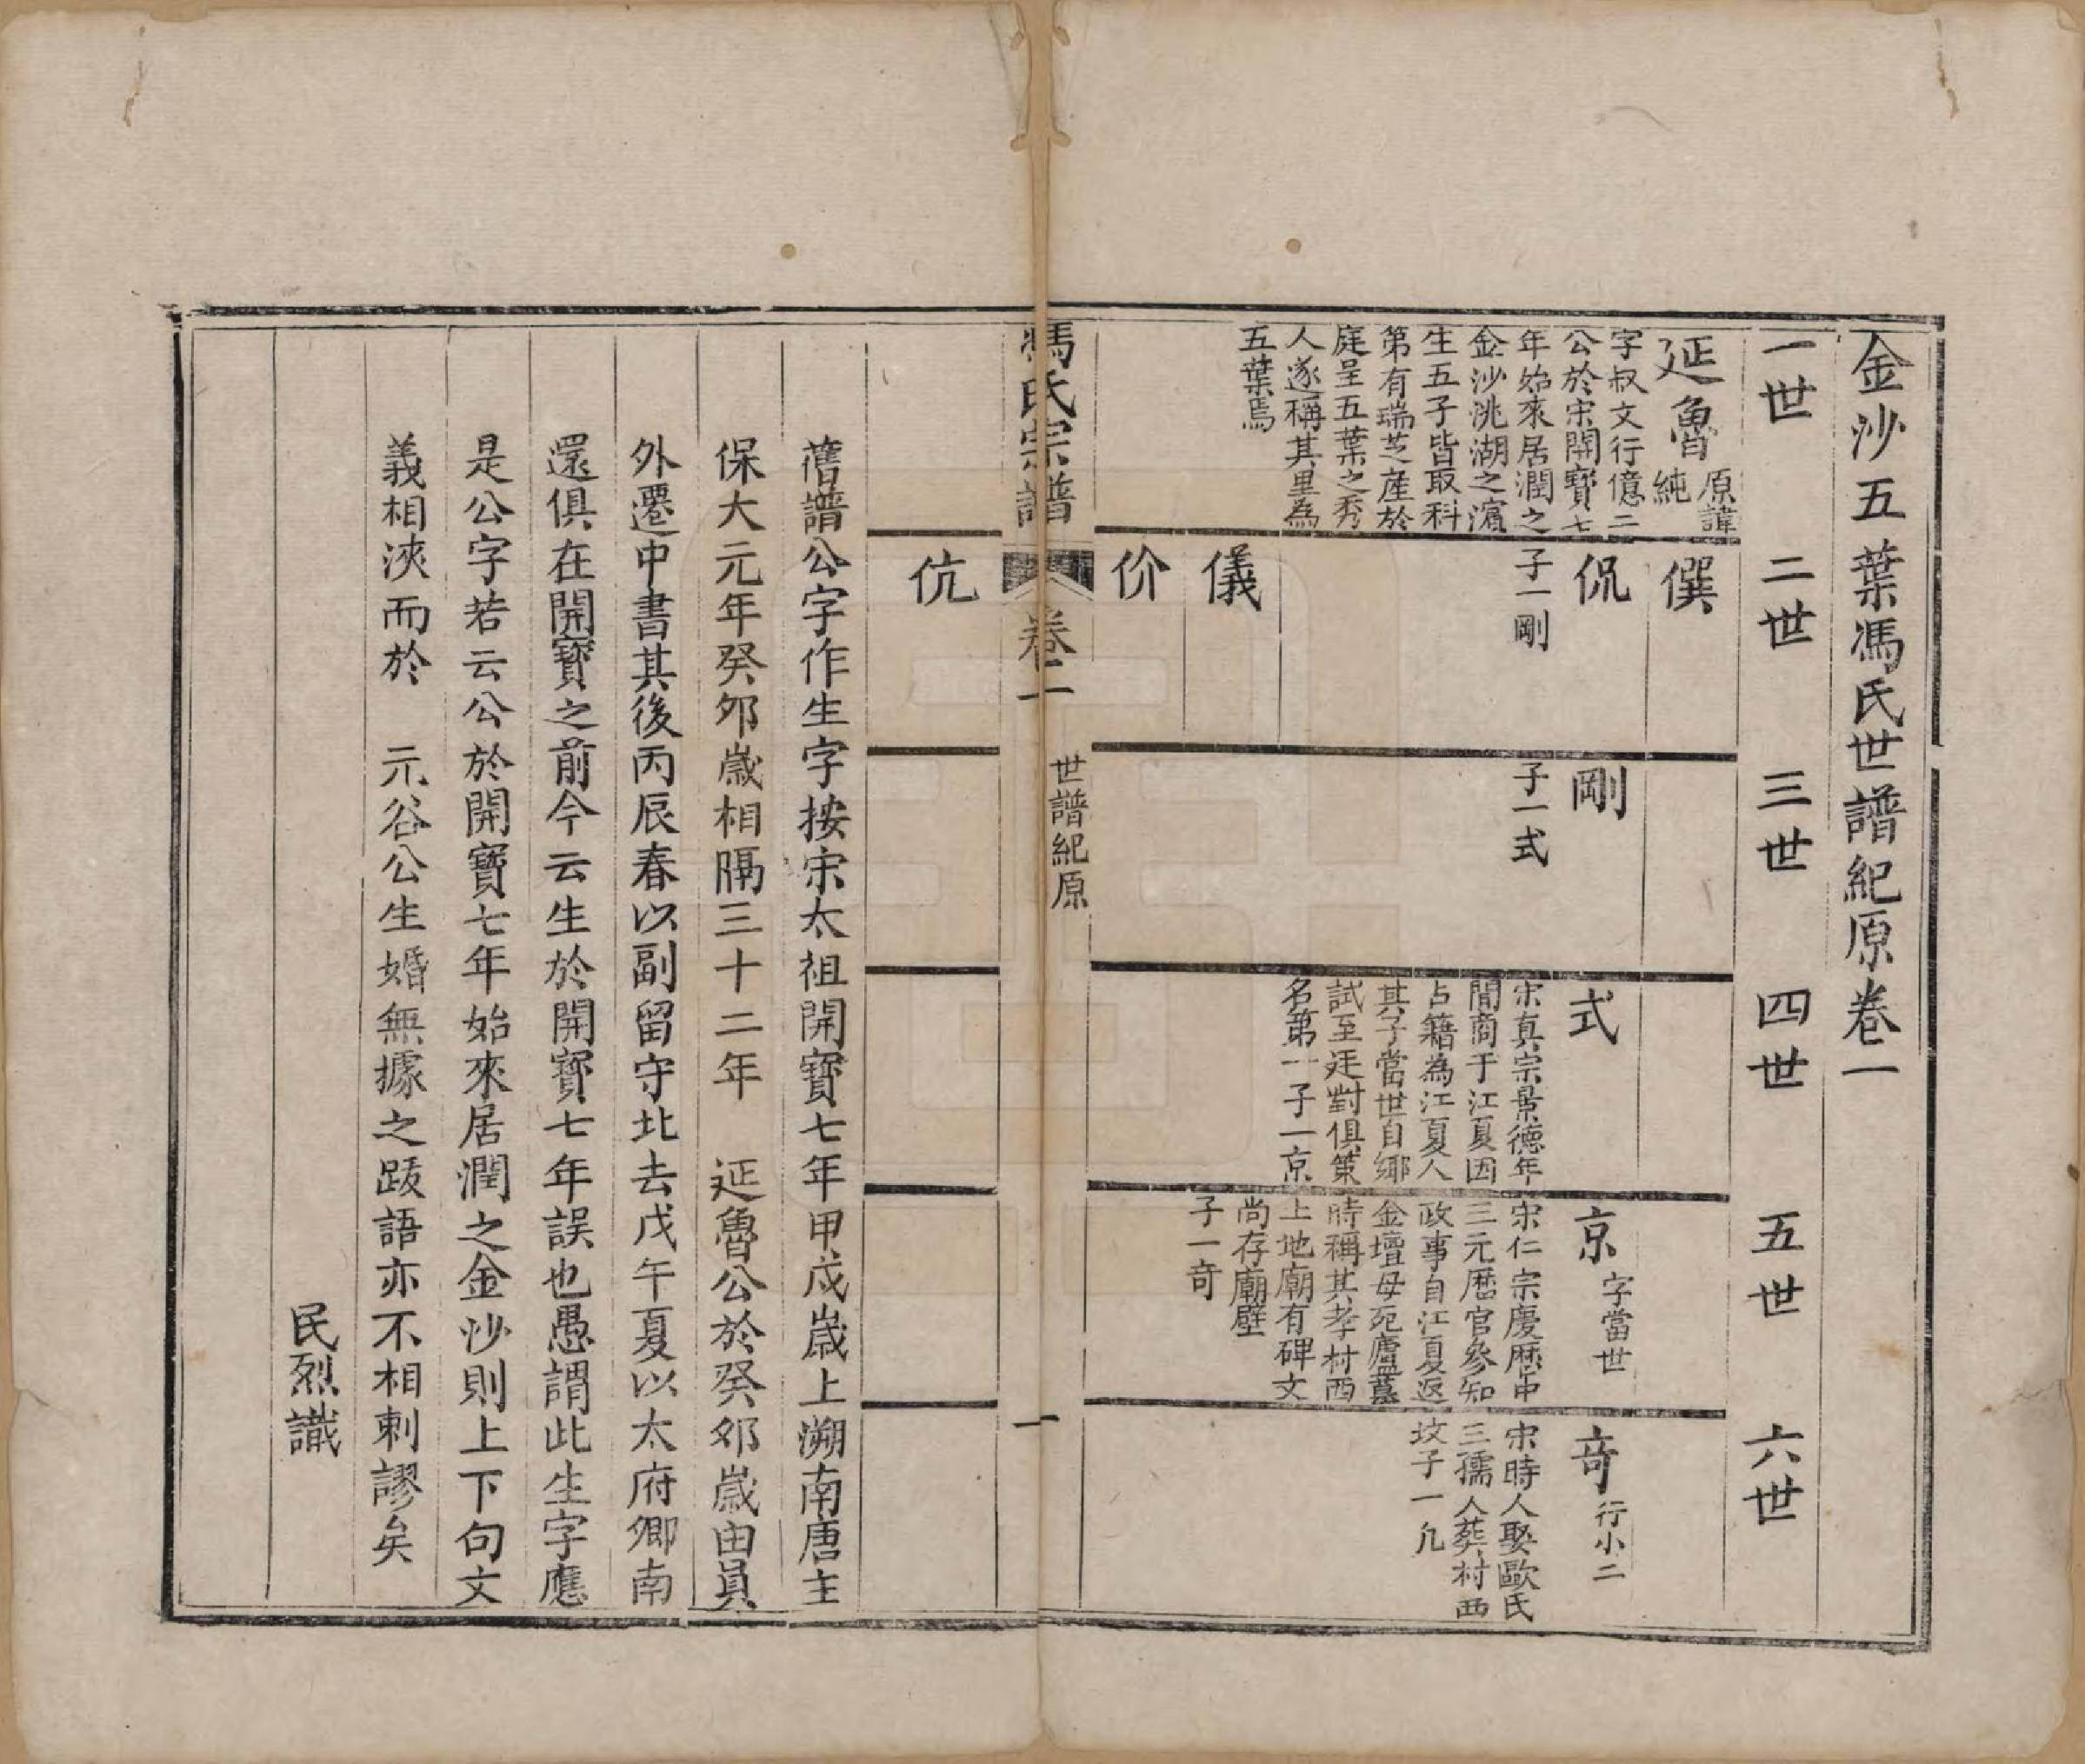 金沙五葉馮氏世譜紀原卷一
一世
二世
三世
四世
五世
六世
延魯
原諱
純
字叔文行億二
公於宋開寶七
年始來居潤之
金沙洮湖之濵
生五子皆取科
第有瑞芝產於
庭呈五葉之秀
人遂稱其里為
五葉焉
僎
侃
子一剛
儀
价
伉
剛
子一式
式
宋真宗景德年
間商于江夏因
占籍為江夏人
其子當世自鄉
試至廷對俱策
名第一子一京
京
字當世
宋仁宗慶厯中
三元厯官參知
政事自江夏返
金壇母死廬墓
時稱其孝村西
上地廟有碑文
尚存廟壁
子一竒
竒
行小二
宋時人娶歐氏
三孺人葬村西
坟子一凢
馮氏宗譜
卷一
世譜紀原
一
舊譜公字作生字按宋太祖開寶七年甲戌歲上溯南唐主
保大元年癸夘歲相隔三十二年 延魯公於癸夘歲由員
外遷中書其後丙辰春以副留守北去戊午夏以太府卿南
還俱在開寶之前今云生於開寶七年誤也愚謂此生字應
是公字若云公於開寶七年始來居潤之金沙則上下句文
義相浹而於 元谷公生婚無據之跋語亦不相剌謬矣
民烈識